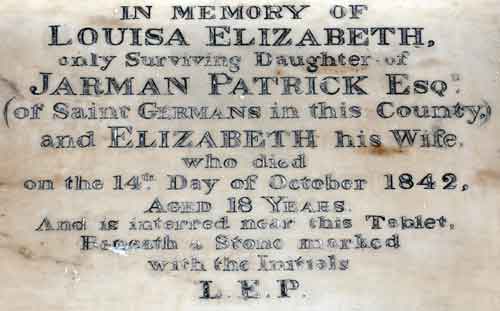 IN MEMORY OF
LOUISA ELIZABETH,
only Surviving Daughter of
JARMAN PATRICK ESQR.
(of Saint GERMANS in this County,)
and ELIZABETH his Wife.
who died
on the 14th. Day of October 1842,
AGED 18 YEARS.
And is interred near this Tablet,
Beneath a Stone marked
with the Initials
L.E.P.